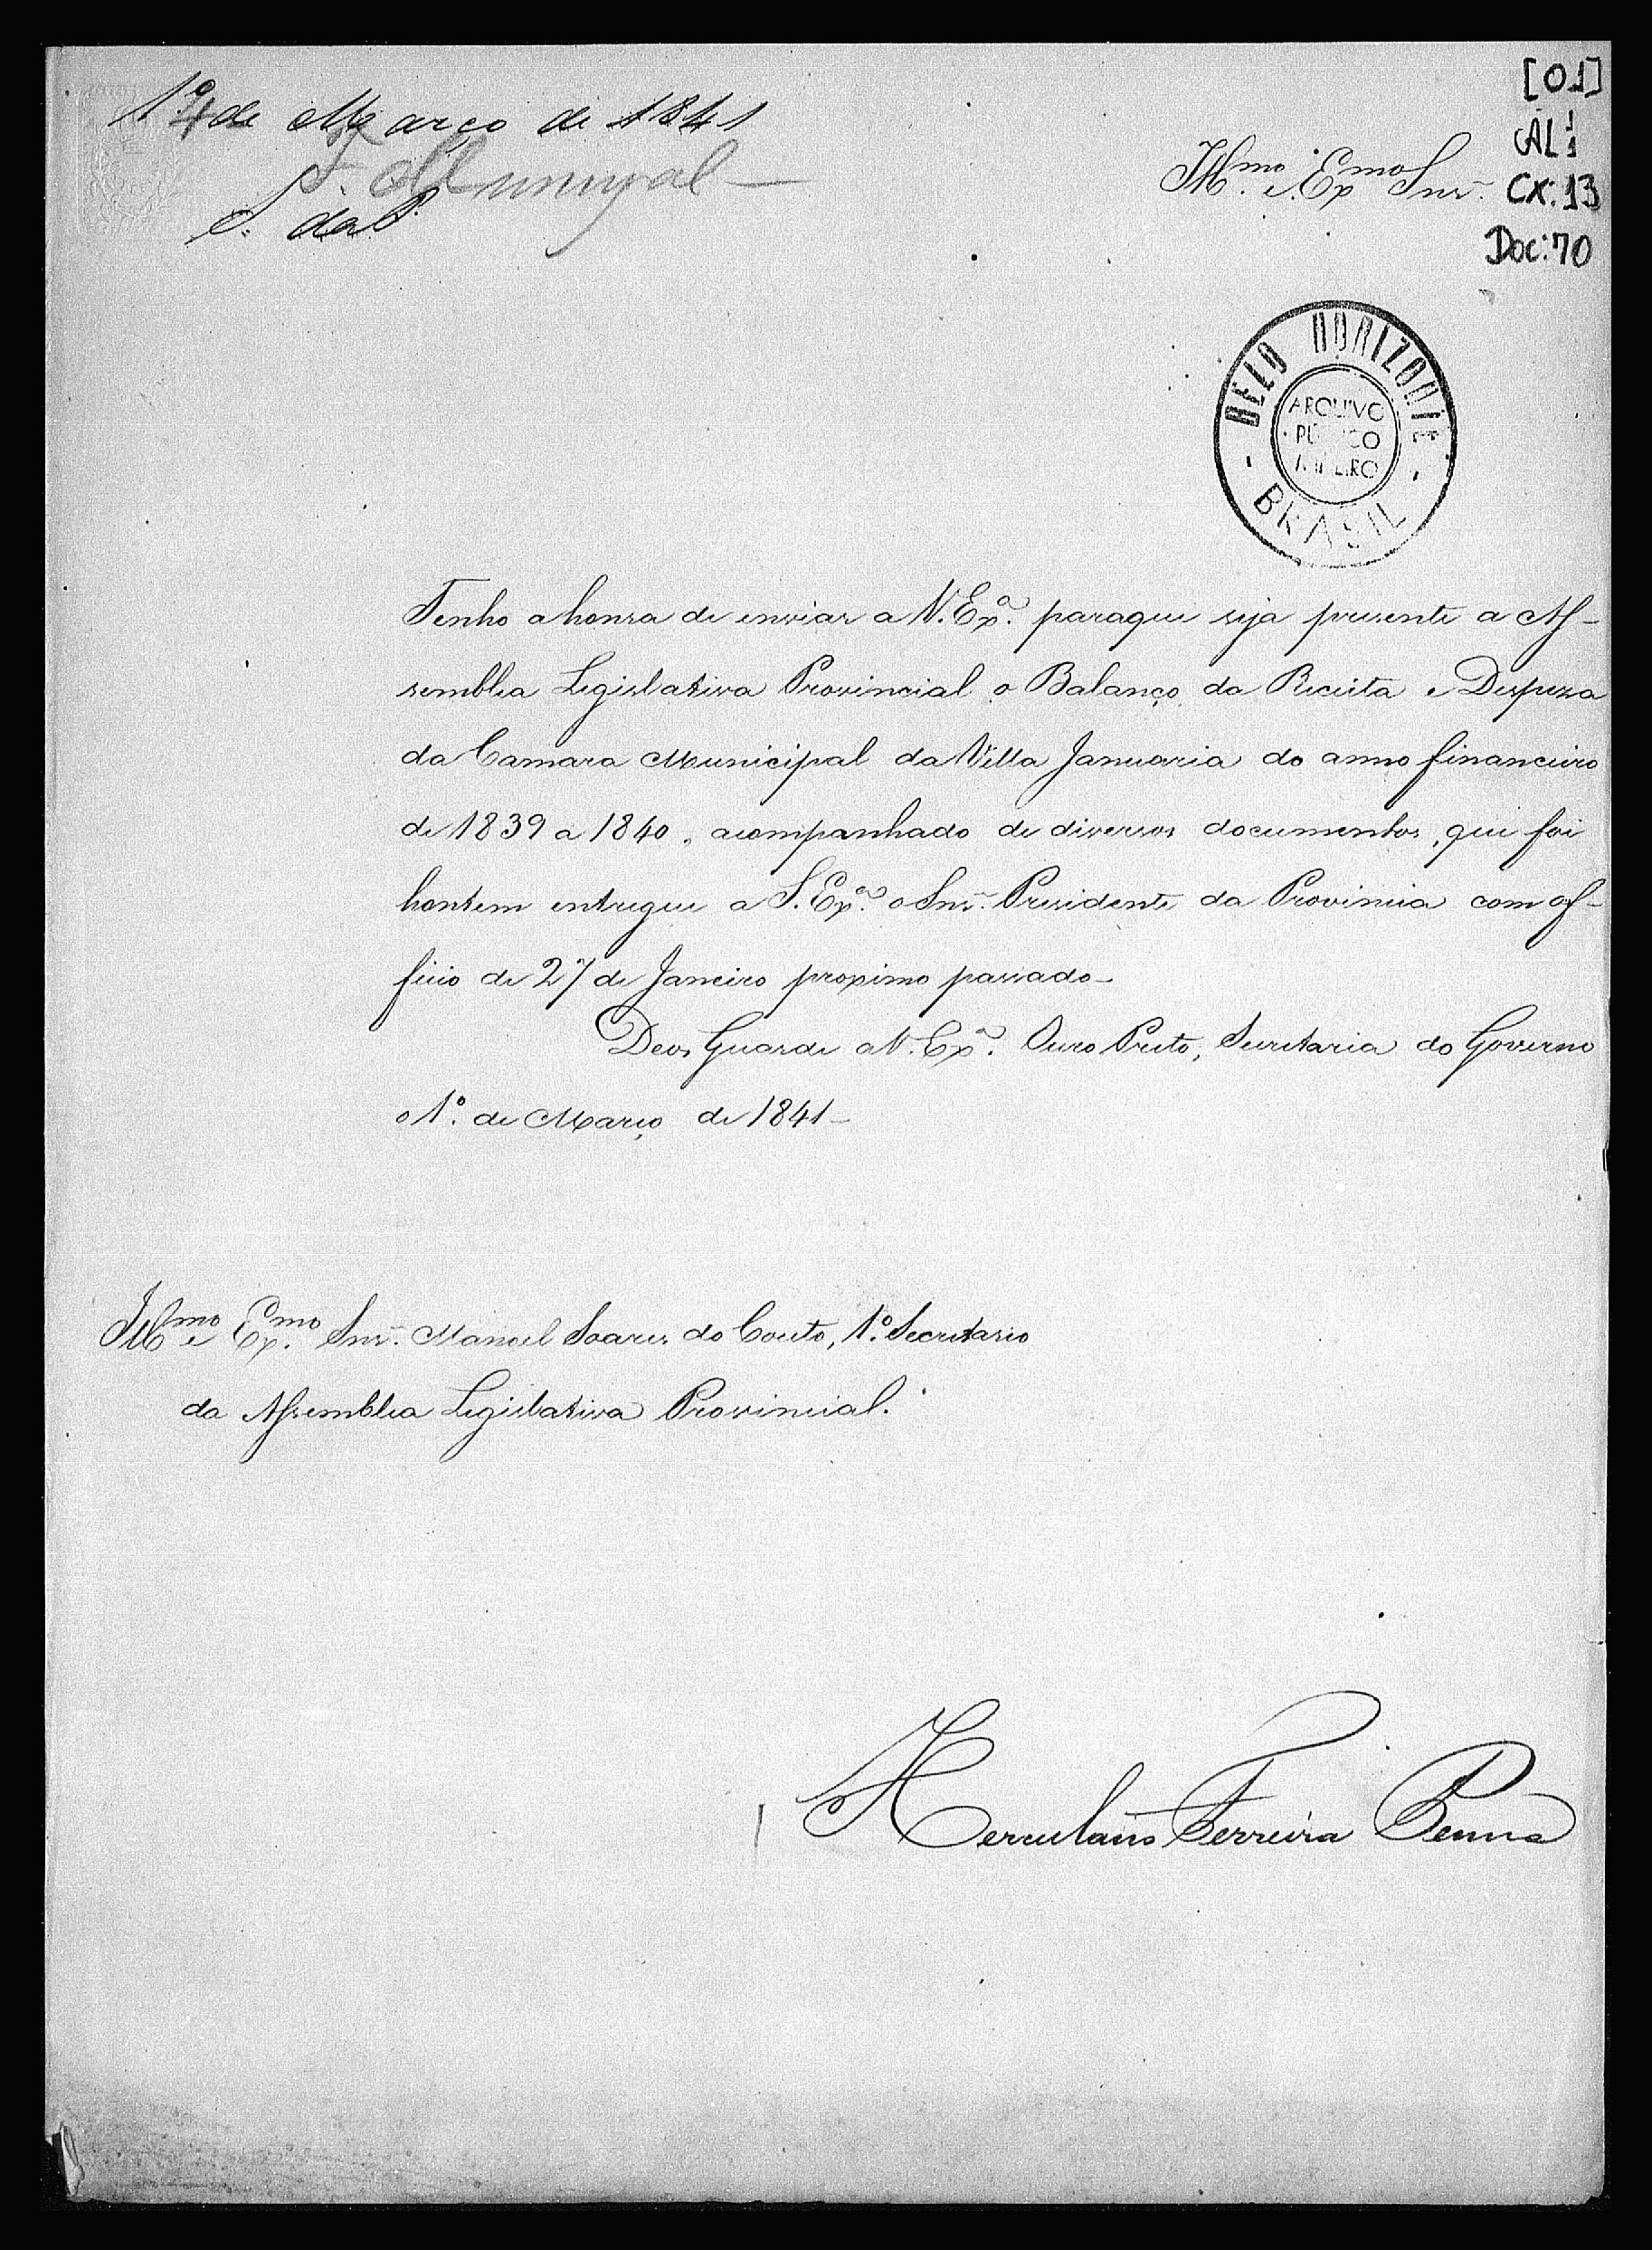 [01]
AL 1
1
CX: 13
Doc: 70
1º de Março de 1841
F. Municipal —
C. da P.
Illmo. e Exmo. Snr.
BELO HORIZONTE
ARQUIVO
PÚBLICO
MINEIRO
- BRASIL -
Tenho a honra de enviar a V. Exª. paraque seja presente a As-
semblea Legislativa Provincial o Balanço da Receita e Despeza
da Camara Municipal da Villa Januaria do anno financeiro
de 1839 a 1840, acompanhado de diversos documentos, que foi
hontem entregue a S. Exª. o Snr. Presidente da Provincia com of-
ficio de 27 de Janeiro proximo passado—
Deos Guarde a V. Exª. Ouro Preto, Secretaria do Governo
o 1º. de Março de 1841—
Illmo e Exmo. Snr. Manoel Soares do Couto, 1º. Secretario
da Assemblea Legislativa Provincial.
Herculano Ferreira Penna